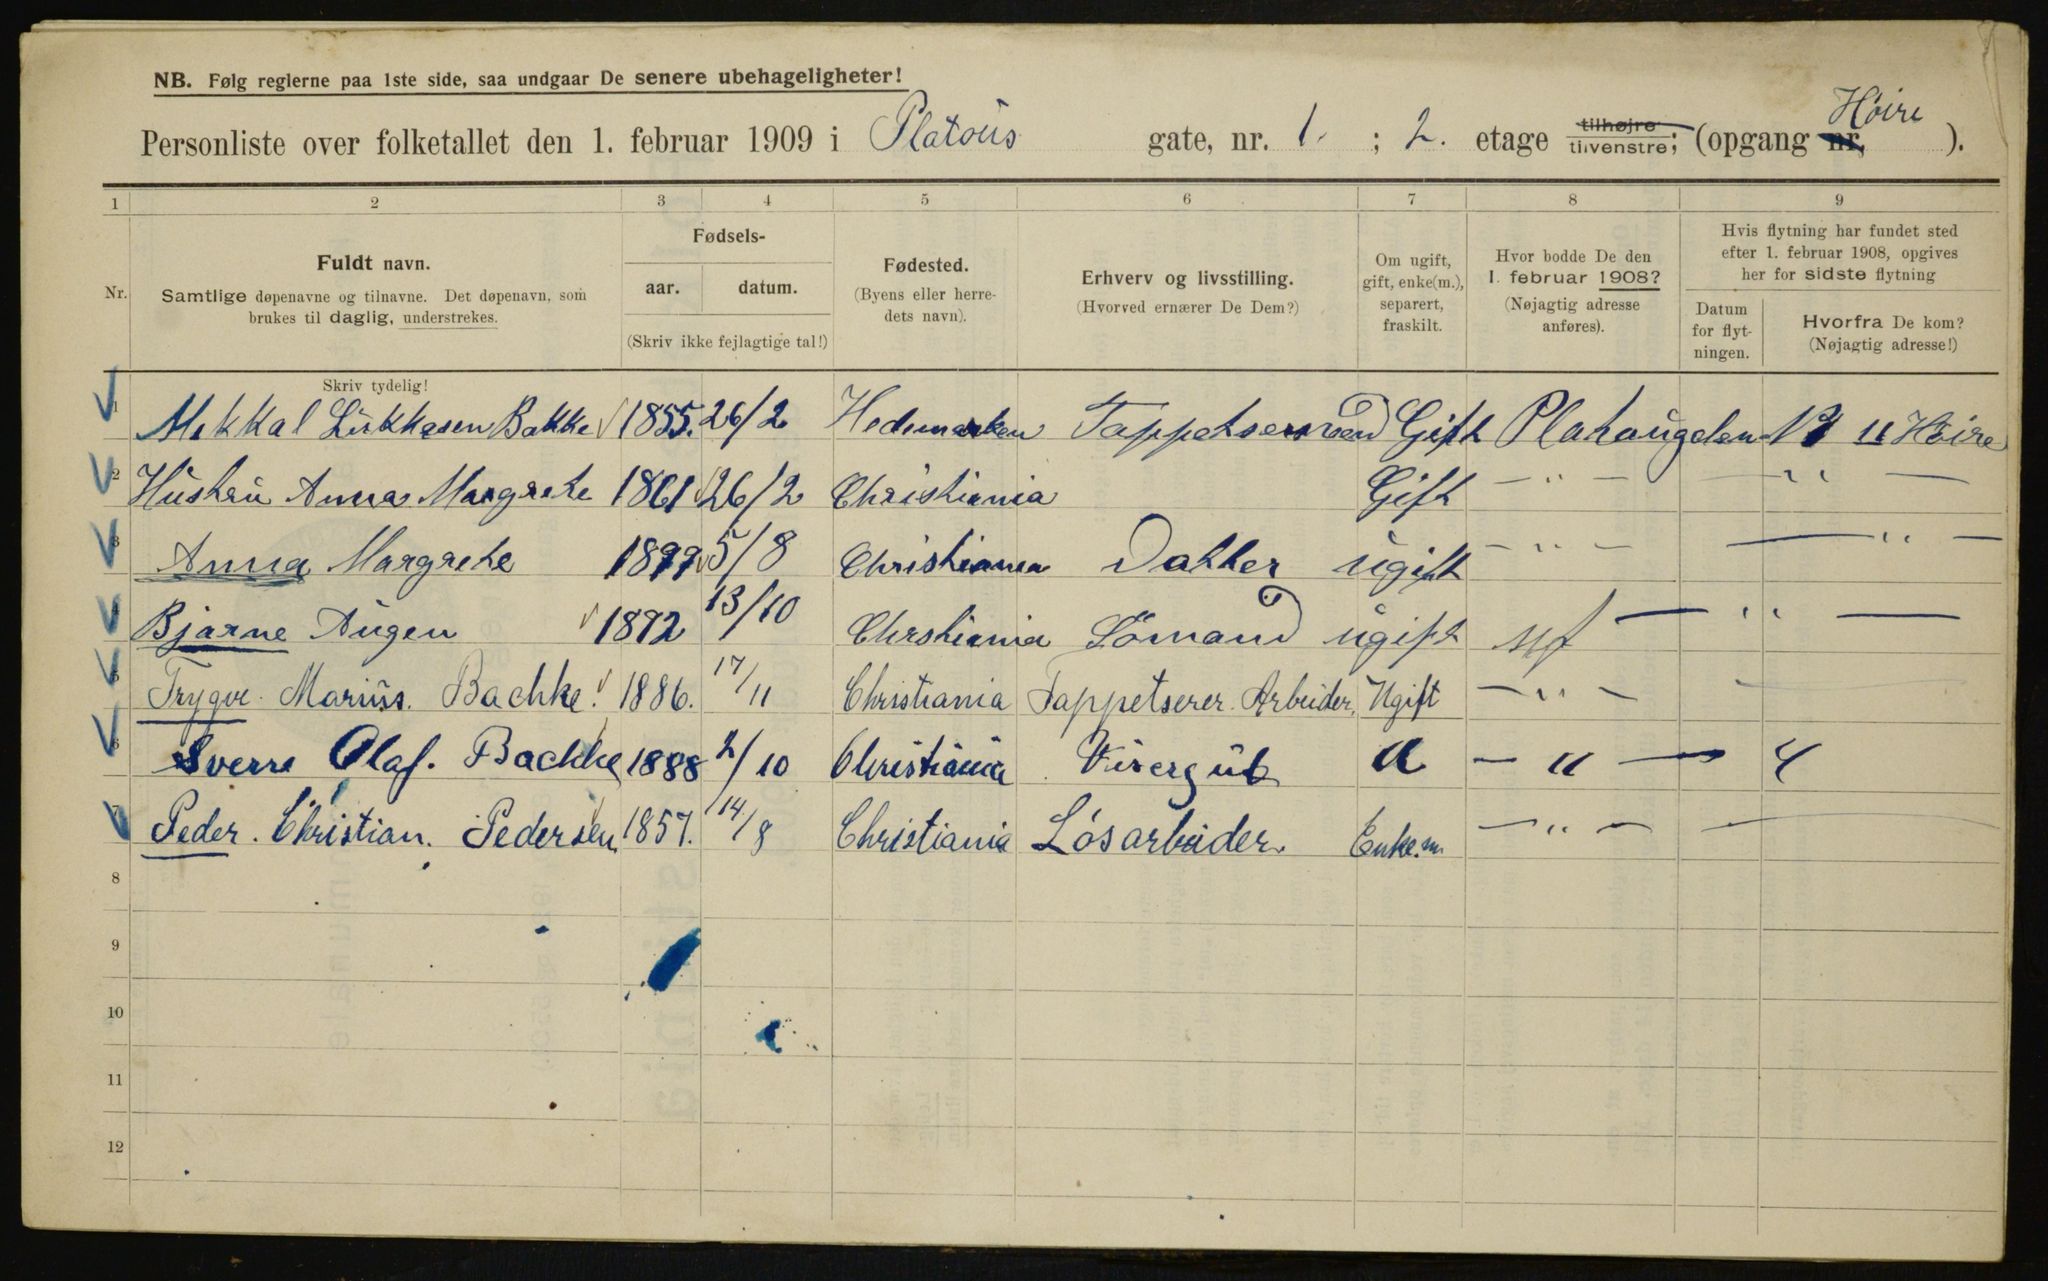 NB. Følg reglerne paa 1ste side, saa undgaar De senere ubehageligheter!
Personliste over folketallet den 1. februar 1909 i Platous gate, nr. 1. ; 2. etage tilhøjre tilvenstre; (opgang nr. Høire ).
1 2 3 4 5 6 7 8 9
Nr.
Fuldt navn.
Samtlige døpenavne og tilnavne. Det døpenavn, som
brukes til daglig, understrekes.
Skriv tydelig!
Fødsels-
aar. datum.
(Skriv ikke fejlagtige tal!)
Fødested.
(Byens eller herre-
dets navn).
Erhverv og livsstilling.
(Hvorved ernærer De Dem?)
Om ugift,
gift, enke(m.),
separert,
fraskilt.
Hvor bodde De den
1. februar 1908?
(Nøjagtig adresse
anføres).
Hvis flytning har fundet sted
efter 1. februar 1908, opgives
her for sidste flytning
Datum
for flyt-
ningen.
Hvorfra De kom?
(Nøjagtig adresse!)
1 Mekkal Lukkasen Bakke 1855. 26/2 Hedemarken Gift 11 Høire
2 Hustru Anna Margrete 1861 26/2 Christiania Gift — " — — " —
3 Anna Margrete 5/8 Christiania Datter ugift — " — — " —
4 Bjarne Augen 1892 13/10 Chrstiania Sömand ugift — " —
5 Trygve Marius. Bachke. 1886. 17/11 Christiania Tappetserer. Arbeider. Ugift — " —
6 Sverre Olaf. Bachke 1888 2/10 Christiania Visergut " — " —
7 Peder. Christian. Pedersen 1857. 14/8 Christiania Løsarbeider. Enke.m. — " —
8
9
10
11
12